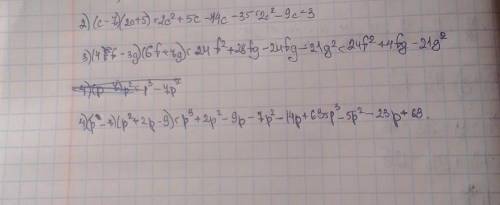 2) (c-7)(2c+5)=2c²+5c-14c-35=2c²-9c-3
3) (4f-3g)(6f+7g)=24f²+28fg-24fg-21g²=24f²+4fg-21g²
p³-7p²
(p²+2p-9)=p³+2p²-9p-7p²-14p+63=p³-5p²-23p+63.